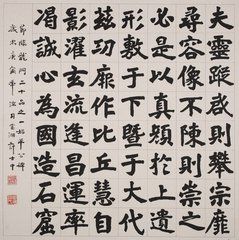 夫靈則攀宗靡
尋容像不陳則崇之
必是以真顏於上
形敷于下暨大代
茲功厥作比丘慧自
影濯玄流昌運率
渴誠心為國造石窟
節臨龍門二十品之一始平公碑
歲次庚寅年月金湖許士中